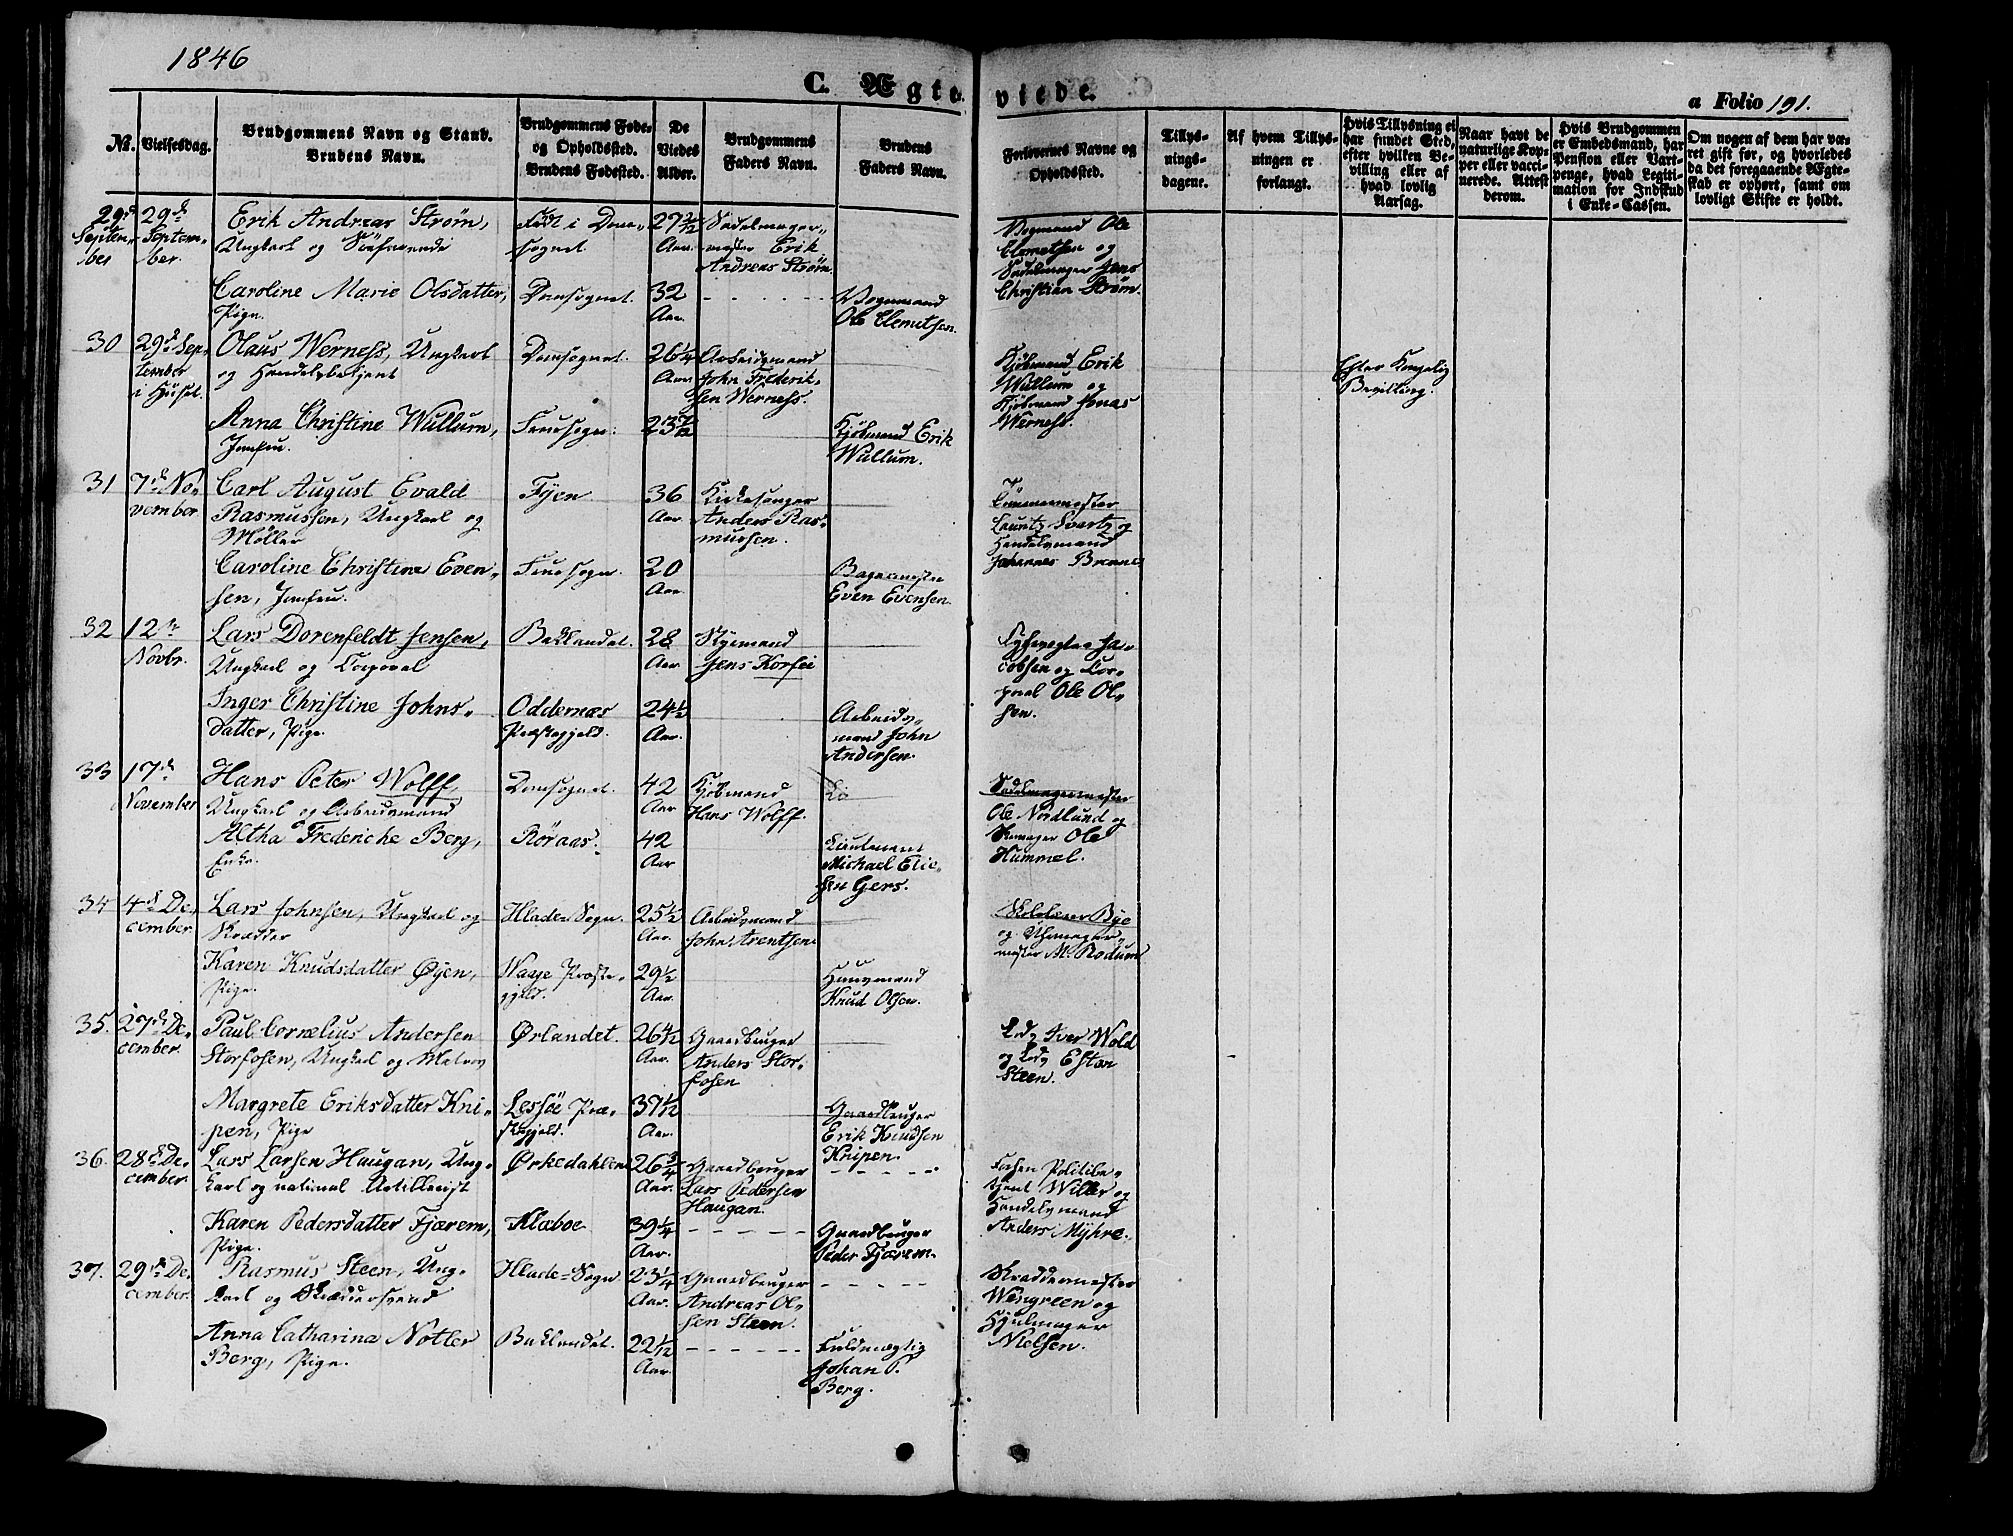 1846
C. Ægte-
viede.
a Folio 191.
No.
Vielsesdag.
Brudgommens Navn og Stand.
Brudens Navn.
Brudgommens Føde-
og Opholdssted.
Brudens Fødested.
De
Viedes
Alder.
Brudgommens
Faders Navn.
Brudens
Faders Navn.
Forlovernes Navne og
Opholdssted.
Tillys-
nings-
dagene.
Af hvem Tillys-
ningen er
forlangt.
Hvis Tillysning ei
har fundet Sted,
efter hvilken Be-
villing eller af
hvad lovlig
Aarsag.
Naar havt de
naturlige Kop-
per eller vacci-
nerede. Attest
derom.
Hvis Brudgommen
er Embedsmand, har
Pension eller Vart-
penge, hvad Legiti-
mation for Indskud
i Enke-Cassen.
Om nogen af dem har væ-
ret gift før, og hvorledes
da det foregaaende Ægte-
skab er ophørt, samt om
lovligt Skifte er holdt.
29de
Septem-
ber.
Erik Andreas Strøm,
Ungkarl og
Født i Dom-
sognet
27 3/12
Aar.
Sadelmager-
mester Erik
Andreas Strøm
Vognmand Ole
Clemetsen og
Sadelmager Jens
Christian Strøm.
Caroline Marie Olsdatter,
Pige.
Domsognet.
32
Aar.
Vognmand
Ole Clemetsen.
30
29de Sep-
tember
i Huset.
Olaus Werness, Ungkarl
og Handelsbetjent
Domsognet.
26 1/4
Aar.
Arbeidsmand
John Frederik-
sen Werness.
Kjøbmand Erik
Wullum og
Kjøbmand Jonas
Werness.
Efter Kongelig
Bevilling.
Anna Christine Wullum,
Jomfru.
Fruesogn.
23 7/12
Kjøbmand Erik
Wullum.
31
7de No-
vember.
Carl August Evald
Rasmussen, Ungkarl og
Møller
Fyen
36
Aar.
Kirkesanger
Anders Ras-
mussen.
Tømmermester
Lauritz Svartz og
Handelsmand
Johannes Brenne
Caroline Christine Even-
sen, Jomfru.
Fruesogn.
20
Aar.
Bagermester
Even Evensen.
32
12te
Novbr.
Lars Dorenfeldt Jensen,
Ungkarl og Corporal
Baklandet.
28
Aar.
Styrmand
Jens Korsie
Ja-
cobsen og Cor-
poral Ole Ol-
sen.
Inger Christine Johns-
datter, Pige.
Oddernæs
Præstegjeld.
24 1/2
Aar.
Arbeids-
mand John
Andersen.
33
17de
November
Hans Peter Wolff,
Ungkarl og Arbeidsmand
Domsognet.
42
Aar
Kjøbmand
Hans Wolff.
Sadelmagermester
Ole Nordlund og
Skomager Ole
Hummel.
Altha Frederiche Berg,
Enke.
Röraas.
42
Aar
Lieutenant
Michael Elie-
sen Gers.
34
4de De-
cember.
Lars Johnsen, Ungkarl og
Skrædder
Hlade Sogn.
25 1/2
Aar.
Arbeidsmand
John Arentsen
Skolelærer Bye
og Uhrmager-
mester M. Rodum
Karen Knudsdatter Øyen,
Pige.
Waage Præste-
gjeld.
29 1/2
Aar.
Huusmand
Knud Olsen.
35.
27de De-
cember.
Paul Cornelius Andersen
Storfosen, Ungkarl og Matros
Ørlandet.
26 4/12
Aar.
Gaardbruger
Anders Stor-
fosen
Lods Iver Wold
og Lods Estan
Steen.
Margrete Eriksdatter Kni-
pen, Pige
Lessöe Præ-
stegjeld.
37 1/12
Aar.
Gaardbruger
Erik Knudsen
Knipen.
36.
28de De-
cember.
Lars Larsen Haugan, Ung-
karl og national Artillerist
Ørkedahlen
26 3/4
Aar.
Gaardbruger
Lars Pedersen
Haugan.
Politibe-
tjent Willer og
Handelsmand
Anders Myhre.
Karen Pedersdatter Fjærem,
Pige.
Klæboe
39 1/4
Aar.
Gaardbruger
Peder Fjærem.
37.
29de De-
cember.
Rasmus Steen, Ung-
karl og Skræddersvend
Hlade-Sogn
23 1/4
Aar.
Gaardbruger
Andreas Ol-
sen Steen.
Skræddermester
Wengreen og
Hjulmager
Nielsen.
Anna Catharina Notler
Berg, Pige.
Baklandet.
22 1/12
Aar.
Fuldmægtig
Johan P.
Berg.